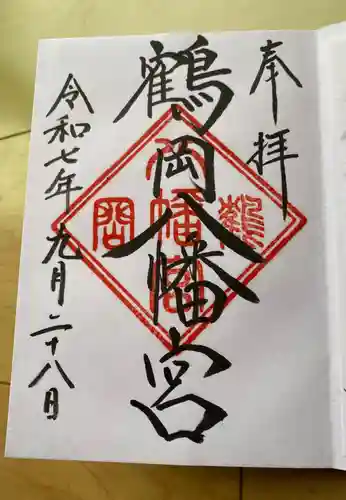 奉拝
鶴岡八幡宮
令和七年九月二十八日
鶴
八幡宮
岡